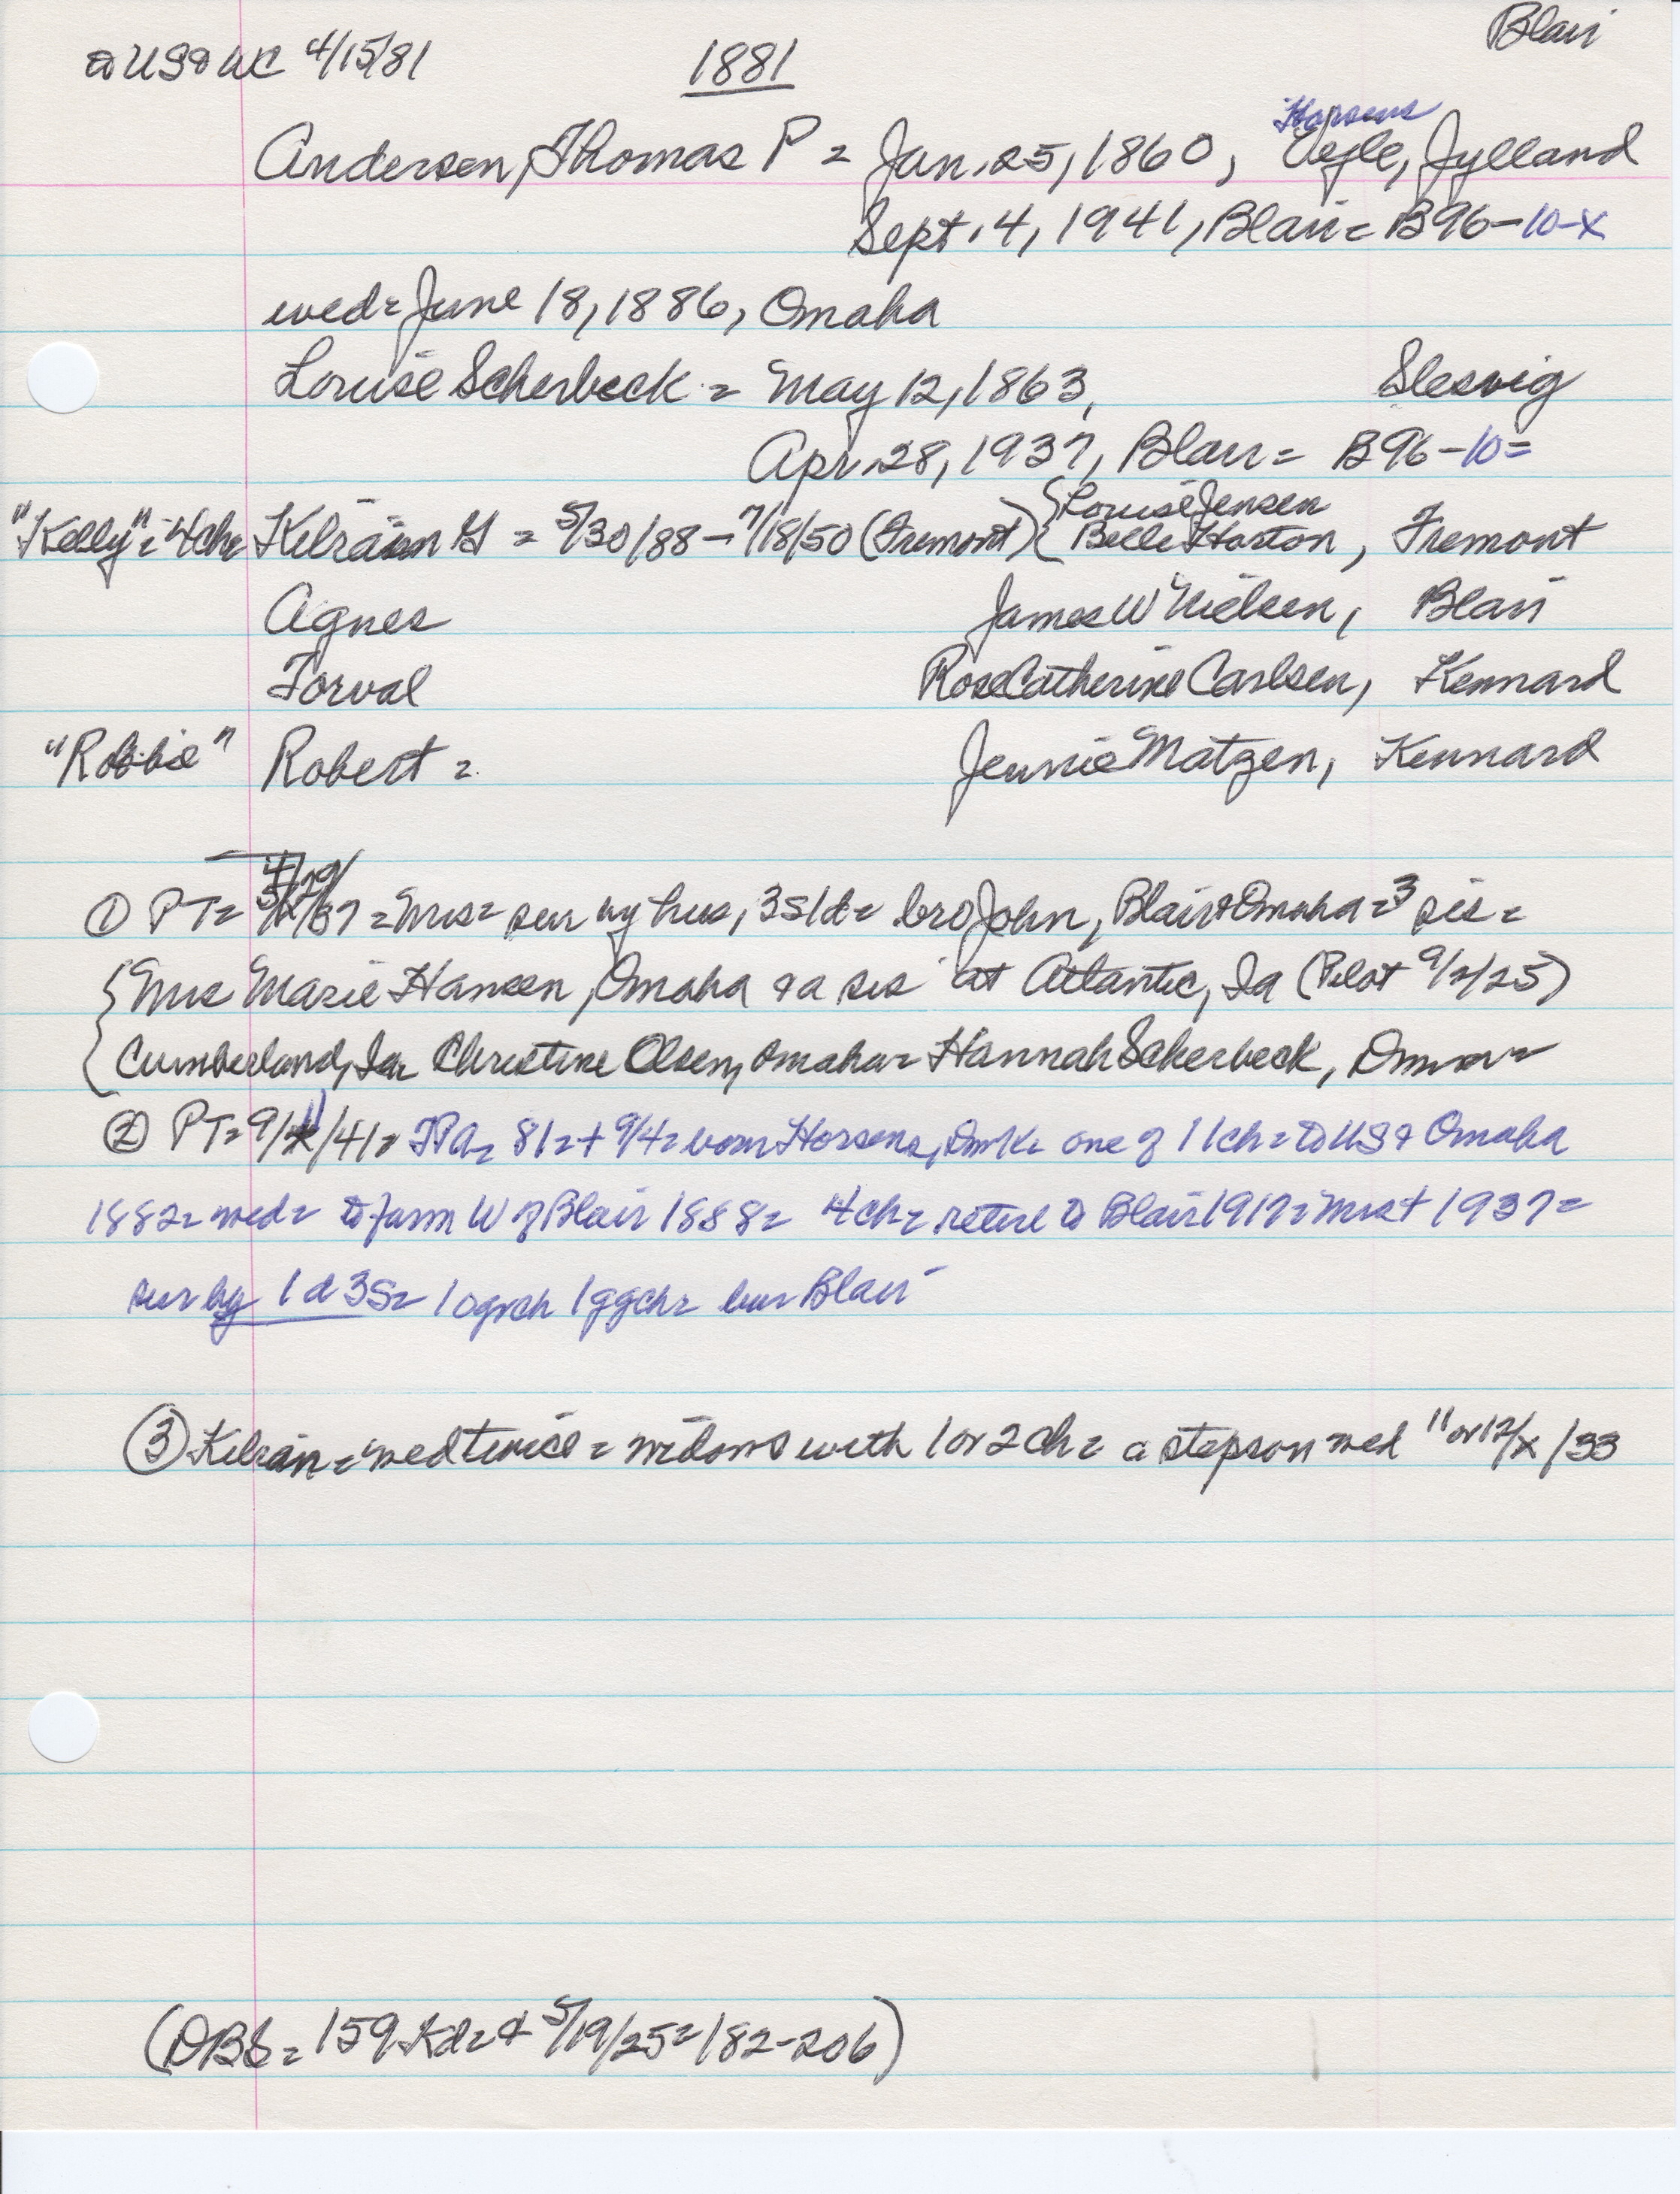 Blair
to US & WC 4/15/81 1881
Horsens
Andersen, Thomas P = Jan. 25, 1860, Vejle, Jylland
Sept. 4, 1941, Blair = B96-10-x
wed = June 18, 1886, Omaha
Louise Scherbeck = May 12, 1863, Slesvig
Apr. 28, 1937, Blair = B96-10=
Louise Jensen
"Kelly" = 4ch = Kilraian G = 5/30/88 - 7/18/50 (Fremont) { Belle Horton, Fremont
Agnes James W Nielsen, Blair
Torval Rose Catherine Carlsen, Kennard
"Robbie" Robert = Jennie Matzen, Kennard
4/29/
① PT= /37 = Mrs = sur by hus, 3s1d = bro John, Blair & Omaha = 3 sis =
{ Mrs Marie Hansen, Omaha & a sis at Atlantic, Ia (Pilot 9/2/25)
Cumberland, Ia Christine Olsen, Omaha = Hannah Scherbeck, =
② PT= 9/11/41 = TPA = 81 = + 9/4 = born Horsens, Dmk = one of 11ch = to US & Omaha
1882 = wed = to farm W of Blair 1888 = 4ch = retire to Blair 1917 = Mrs + 1937 =
sur by 1d 3s = 10grch 1ggch = bur Blair
③ Kilraian = wed twice = widows with 1 or 2 ch = a stepson wed 11 or 12/x/33
(DBS = 159 Kd = & 5/19/25 = 182-206)